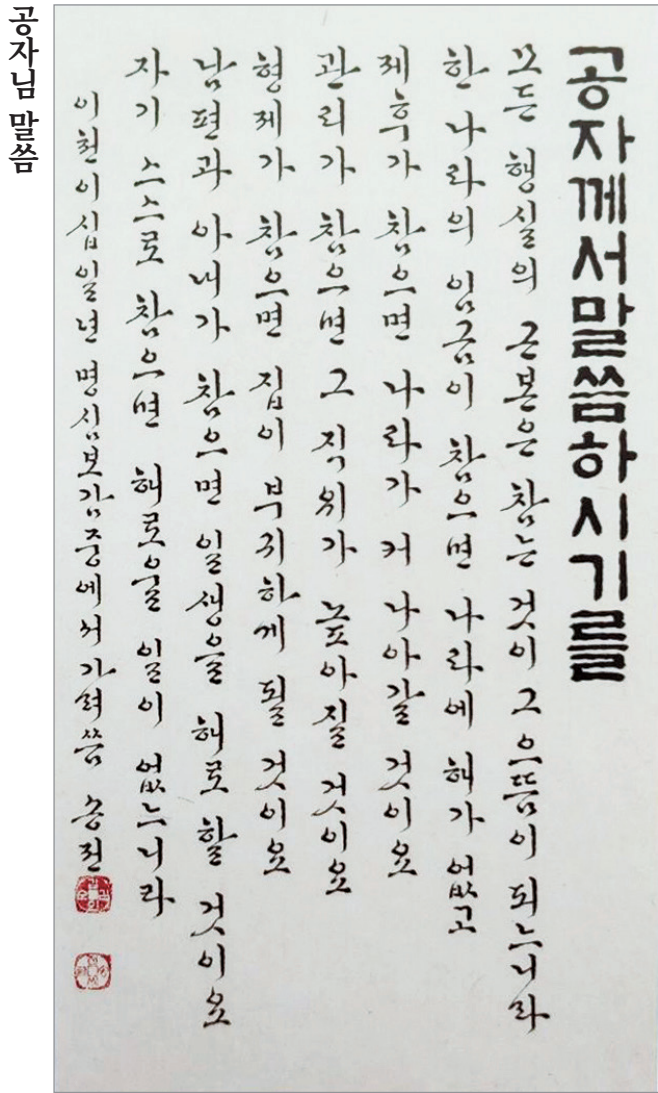 공자님 말씀
공자께서말씀하시기를
모든 행실의 근본은 참는 것이 그 으뜸이 되느니라
한 나라의 임금이 참으면 나라에 해가 없고
제후가 참으면 나라가 커 나아갈 것이요
관리가 참으면 그 직위가 높아질 것이요
형제가 참으면 집이 부귀하게 될 것이요
남편과 아내가 참으면 일생을 해로 할 것이요
자기 스스로 참으면 해로울 일이 없느니라
이천이십일년 명심보감중에서 가려씀 송전